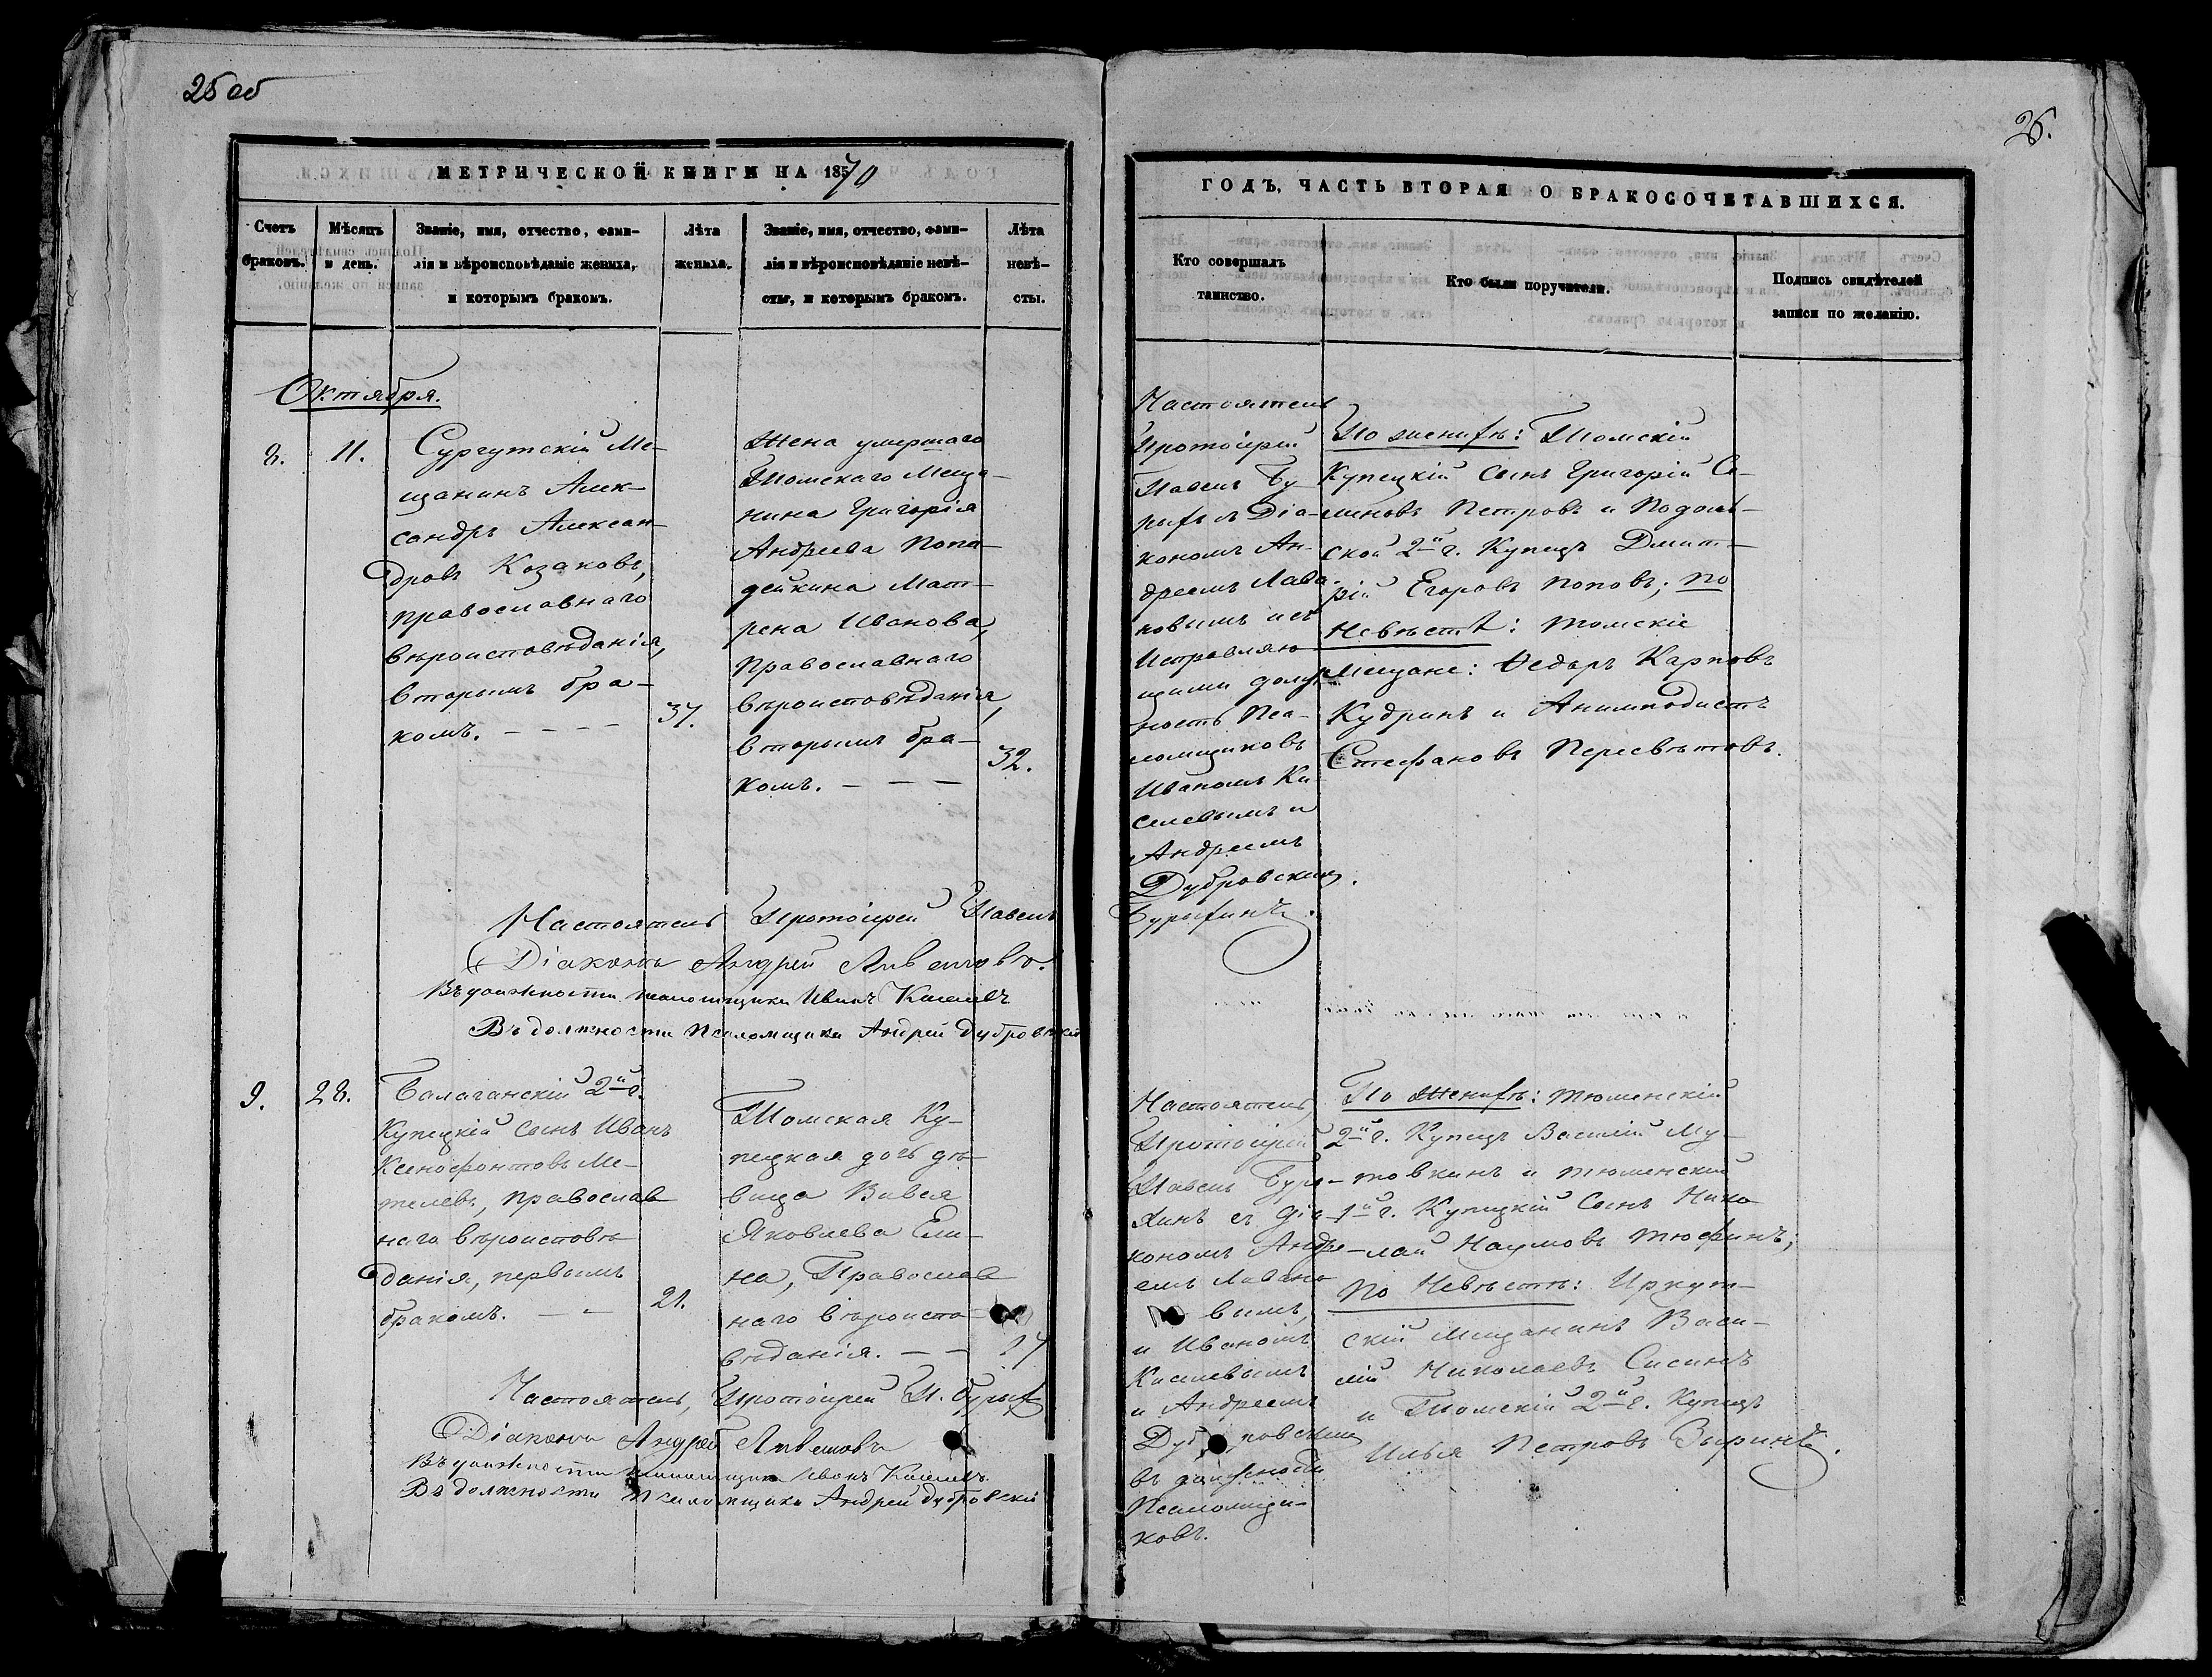 25 об
МЕТРИЧЕСКОЙ КНИГИ НА 1870
Счетъ браковъ.
Мѣсяцъ и день.
Званіе, имя, отчество, фами-
лія и вѣроисповѣданіе жениха,
и которымъ бракомъ.
Лѣта
жениха.
Званіе, имя, отчество, фами-
лія и вѣроисповѣданіе невѣ-
сты, и которымъ бракомъ.
Лѣта
невѣ-
сты.
Октября.
8. 11.
Сургутскій Ме-
щанинъ Алек-
сандръ Алексан-
дровъ Козаковъ,
православнаго
вѣроисповѣданія,
вторымъ бра-
комъ. - - - -
37.
Жена умершаго
Томскаго Меща-
нина Григорія
Андреева Попа-
дейкина Мат-
рена Иванова,
Православнаго
вѣроисповѣданія,
вторымъ бра-
комъ. - - -
32.
Настоятель Протоіерей Павелъ
Діаконъ Андрей
Въ должности псаломщика Иванъ Киселевъ
Въ должности Псаломщика Андрей Дубровскій
9. 28.
Балаганскій 2й г.
Купецкій сынъ Иванъ
Ксенофонтовъ Ме-
телевъ, православ
наго вѣроисповѣ
данія, первымъ
бракомъ. - -
21.
Томская Ку-
пецкая дочь дѣ-
вица
Яковлева Ели-
на, Православ
наго вѣроиспо-
вѣданія. - -
17
Настоятель, Протоіерей П.
Діаконъ Андрей
Въ должности псаломщика Иванъ Киселевъ.
Въ должности Псаломщика Андрей Дубровскій
26.
ГОДЪ, ЧАСТЬ ВТОРАЯ О БРАКОСОЧЕТАВШИХСЯ.
Кто совершалъ
таинство.
Кто были поручители.
Подпись свидѣтелей
записи по желанію.
Настоятель
Протоіерей
Павелъ Бу-
съ Діа-
кономъ Ан-
дреемъ
и съ
Исправляю
щими долж
ность Пса-
ломщиковъ
Иваномъ Ки
селевымъ и
Андреемъ
Дубровским.
По женихѣ: Томскій
Купецкій Сынъ Григорій Се-
меновъ Петровъ и Подоль-
ской 2й г. Купецъ Дмит-
рій Егоровъ Поповъ; по
Невѣстѣ: Томскіе
Мещане: Ѳедоръ Карповъ
Кудринъ и Анимподистъ
Стефановъ Пересвѣтовъ.
Настоятель,
Протоіерей
Павелъ Бур-
съ Діа-
кономъ Андре-
емъ
вымъ,
и Иваномъ
Киселевымъ
и Андреемъ
Дубровским
въ должности
Псаломщи-
ковъ.
По Женихѣ: Тюменскій
2й г. Купецъ Василій Му-
товкинъ и Тюменскій
1й г. Купецкій Сынъ Нико
лай Наумовъ Тюфинъ;
По Невѣстѣ: Иркут-
скій Мещанинъ Васи-
лій Николаевъ Сисинъ
и Томскій 2й г. Купецъ
Илья Петровъ Зыринъ.